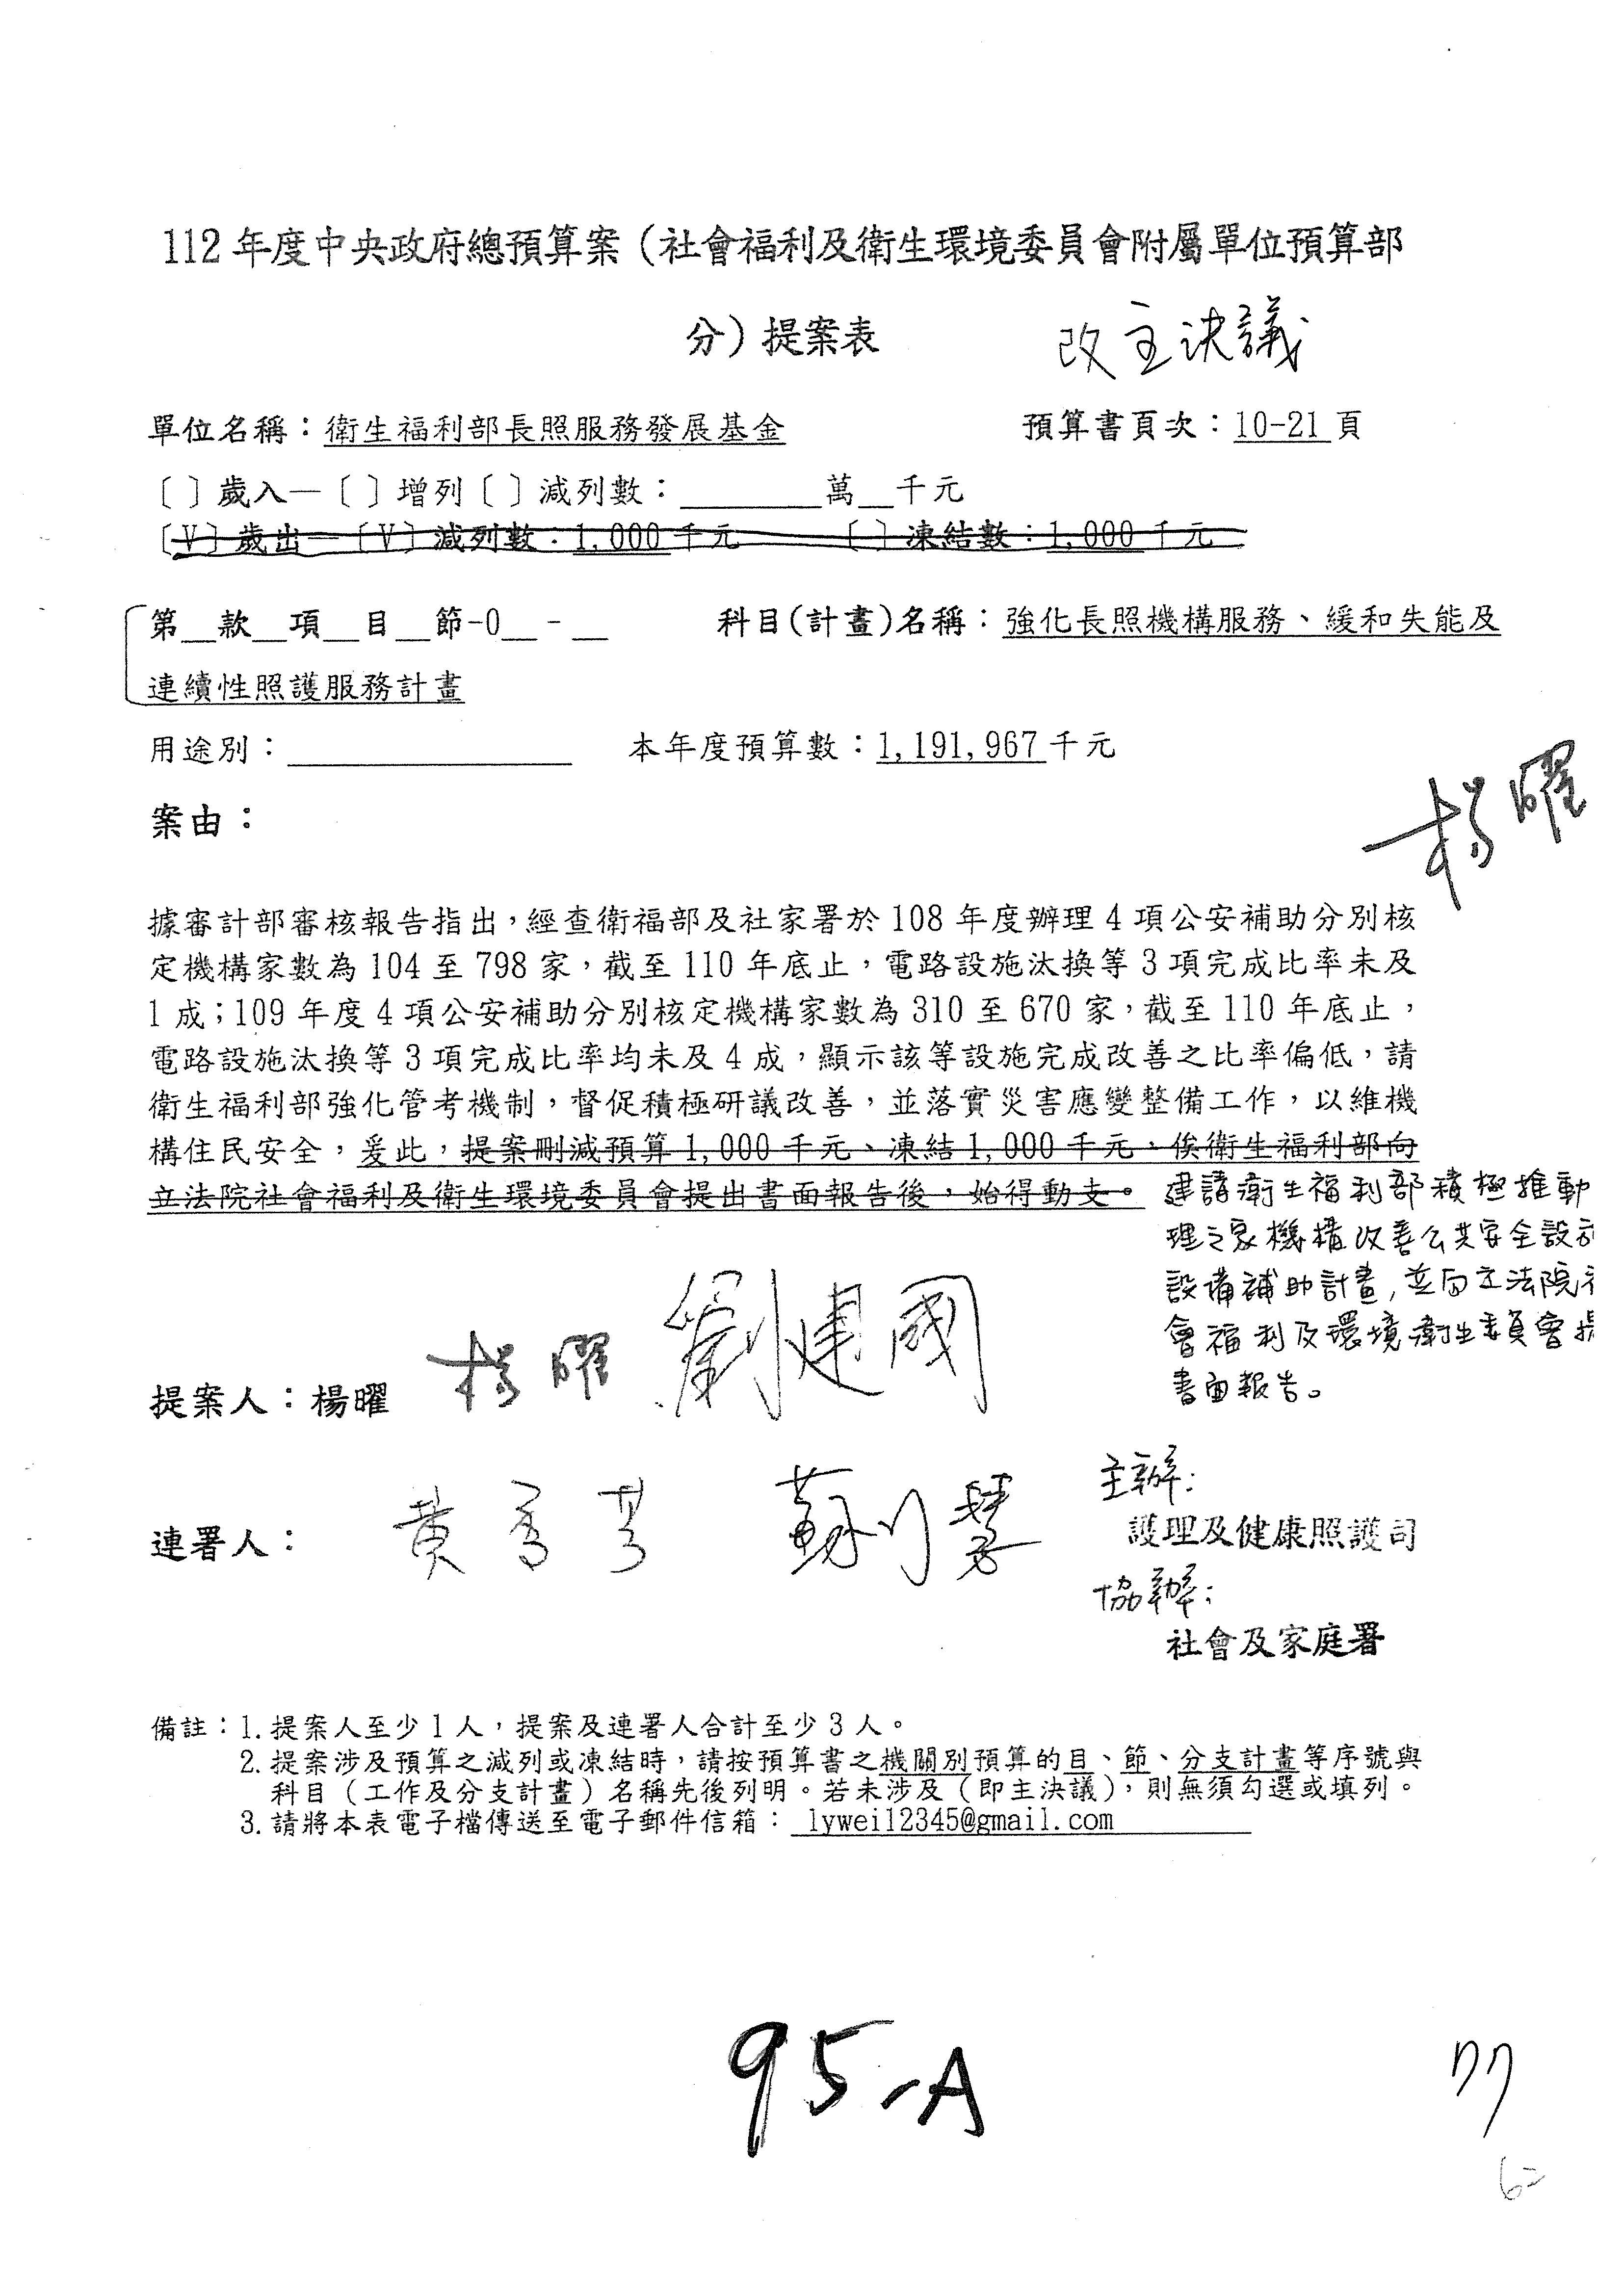 112年度中央政府總預算案（社會福利及衛生環境委員會附屬單位預算部
分）提案表
改主決議
單位名稱：衛生福利部長照服務發展基金 預算書頁次：10-21頁
〔〕歲入—〔〕增列〔〕減列數：________萬__千元
〔V〕歲出—〔V〕減列數：1,000千元 〔〕凍結數：1,000千元
第__款__項__目__節-0__-__ 科目(計畫)名稱：強化長照機構服務、緩和失能及
連續性照護服務計畫
用途別：________ 本年度預算數：1,191,967千元
楊曜
案由：
據審計部審核報告指出，經查衛福部及社家署於108年度辦理4項公安補助分別核
定機構家數為104至798家，截至110年底止，電路設施汰換等3項完成比率未及
1成；109年度4項公安補助分別核定機構家數為310至670家，截至110年底止，
電路設施汰換等3項完成比率均未及4成，顯示該等設施完成改善之比率偏低，請
衛生福利部強化管考機制，督促積極研議改善，並落實災害應變整備工作，以維機
構住民安全，爰此，提案刪減預算1,000千元、凍結1,000千元、俟衛生福利部向
立法院社會福利及衛生環境委員會提出書面報告後，始得動支。
建請衛生福利部積極推動
理之家機構改善公共安全設
設備補助計畫，並向立法院
會福利及環境衛生委員會提
書面報告。
提案人：楊曜 楊曜 劉建國
連署人： 黃秀芳 蘇巧慧
主辦：
護理及健康照護司
協辦：
社會及家庭署
備註：1.提案人至少1人，提案及連署人合計至少3人。
2.提案涉及預算之減列或凍結時，請按預算書之機關別預算的目、節、分支計畫等序號與
科目（工作及分支計畫）名稱先後列明。若未涉及（即主決議），則無須勾選或填列。
3.請將本表電子檔傳送至電子郵件信箱：lywei12345@gmail.com
95-A
77